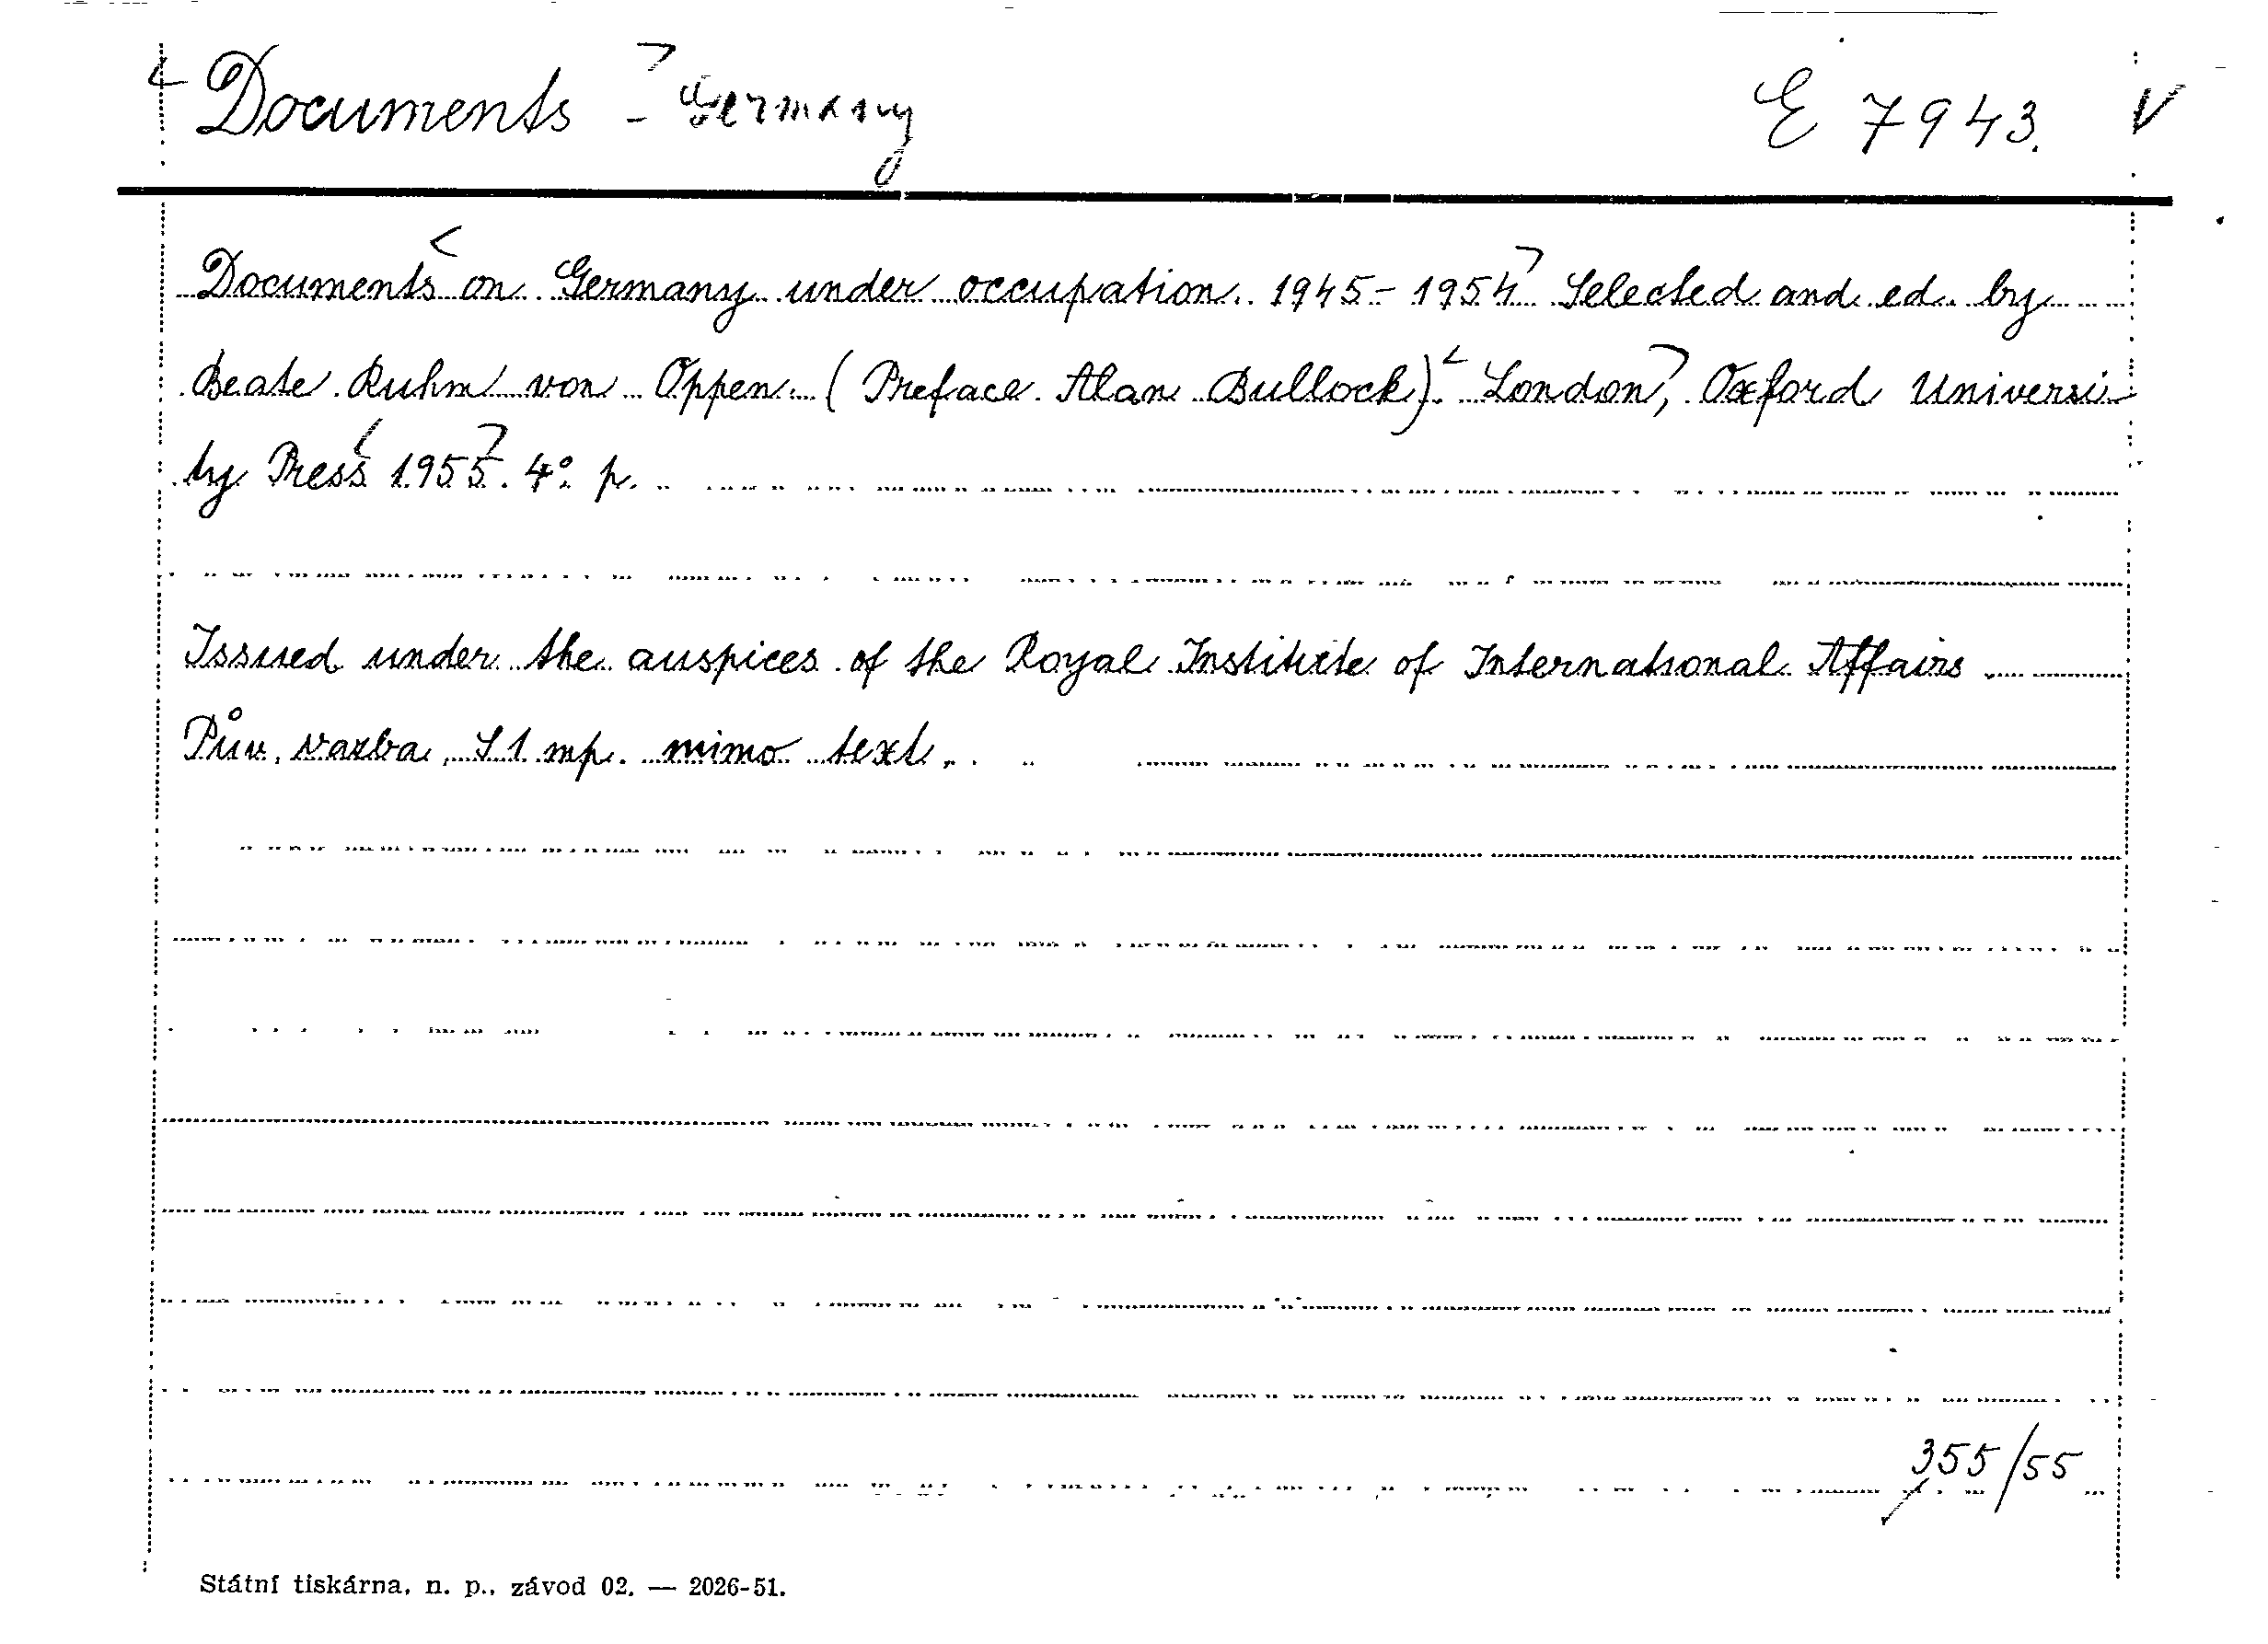 Documents - Germany E 7943. V
Documents on Germany under occupation. 1945 - 1954 Selected and ed. by
Beate Ruhm von Oppen. (Preface Alan Bullock). London, Oxford Universi-
ty Press 1955. 4° p.
Issued under the auspices of the Royal Institute of International Affairs.
Pův. vazba, S 1 mp. mimo text.
355/55
Státní tiskárna, n. p., závod 02. — 2026-51.